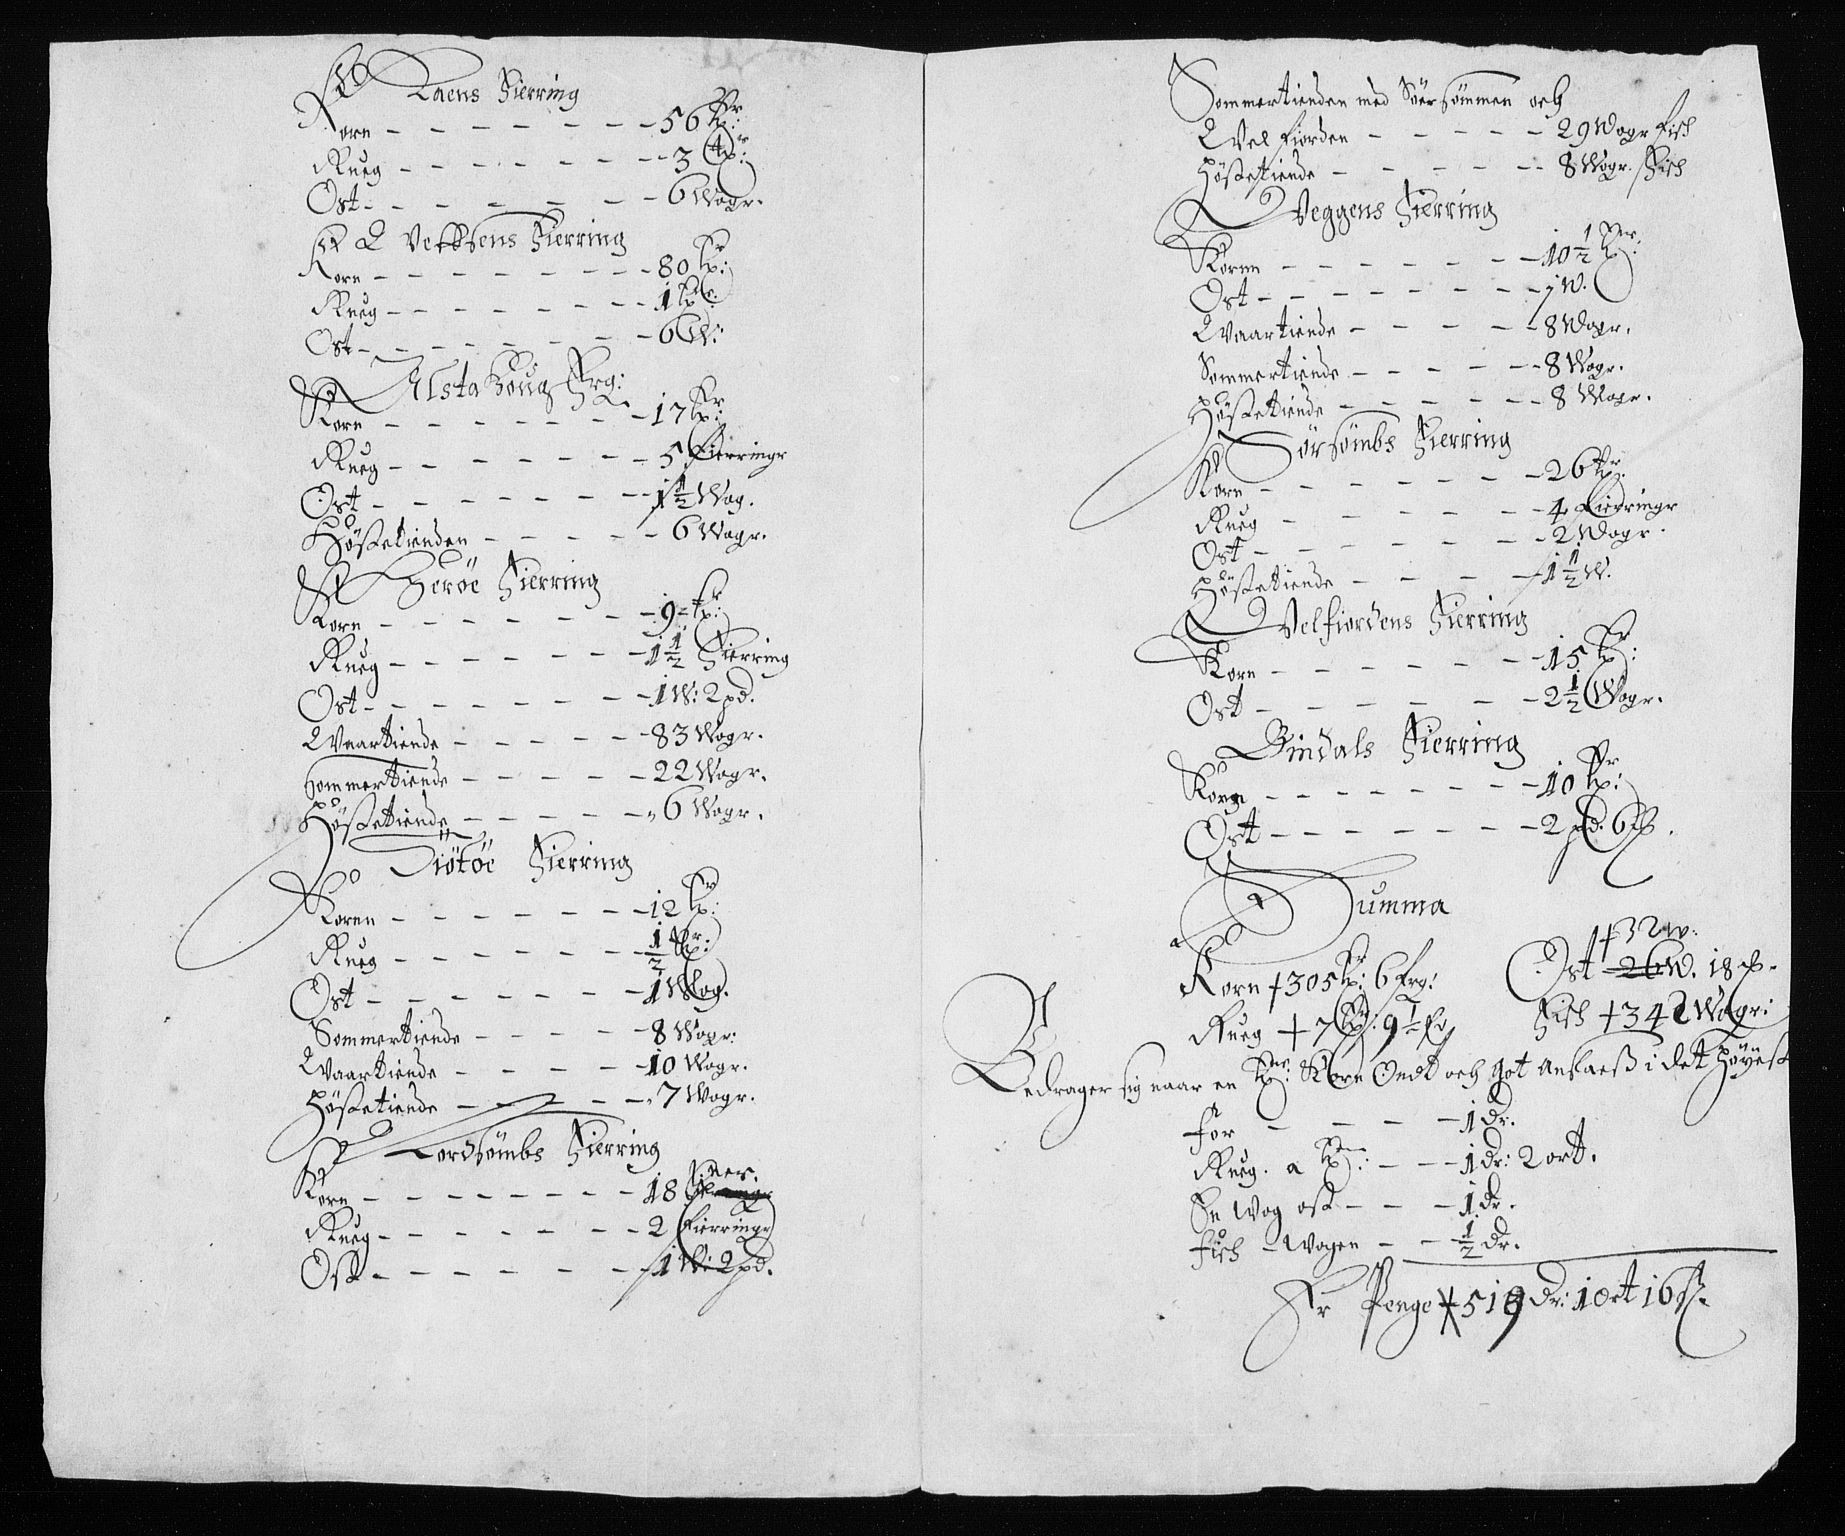 Raens Fierring
Korn - - - - - - - 56 tpr:
Rueg - - - - - - - 3 tpr:
Ost - - - - - - - 6 Wogr.
Veffsens Fierring
Korn - - - - - - - 80 tpr:
Rueg - - - - - - - 1 tpr:
Ost - - - - - - - 6 W:
Alstahoug frg:
Korn - - - - - - - 17 tpr:
Rueg - - - - - - - 5 Fierringr
Ost - - - - - - - 1 1/2 Wog.
Høstetienden - - - - - 6 Wogr.
Herøe Fierring
Korn - - - - - - - 9 tpr:
Rueg - - - - - - - 1 1/2 Fierring
Ost - - - - - - - 1 W: 2 pd.
Waartiende - - - - - 83 Wogr.
Sommertiende - - - - - 22 Wogr.
Høstetiende - - - - - 6 Wogr.
Tiøtøe Fierring
Koren - - - - - - - 12 tpr:
Rueg - - - - - - - 1/2 tpr:
Ost - - - - - - - 1 Wog.
Sommertiende - - - - 8 Wogr:
Waartiende - - - - - 10 Wogr.
Høstetiende - - - - - 7 Wogr.
Nordsømbs Fierring
Korn - - - - - - - 18 tpr.
Rueg - - - - - - - 2 Fierringr
Ost - - - - - - - 1 W: 2 pd.
Sommertienden med Søersømmen och
Velfiorden - - - - - 29 Wogr fisch
Høstetiende - - - - - 8 Wogr. Fisch
Veggens Fierring
Koren - - - - - - - 10 1/2 tpr:
Ost - - - - - - - 1 W.
Waartiende - - - - - 8 Wogr.
Sommertiende - - - - - 8 Wogr.
Høstetiende - - - - - 8 Wogr.
Sørsømbs Fierring
Korn - - - - - - - 26 tpr:
Rueg - - - - - - - 4 Fierringr
Ost - - - - - - - 2 Wogr.
Høstetiende - - - - 1 1/2 W.
Velfiordens Fierring
Korn - - - - - - - 15 tpr:
Ost - - - - - - - 2 1/2 Wogr.
Bindals Fierring
Korn - - - - - - - 10 tpr:
Ost - - - - - - - 2 pd. 6 ℔.
Summa
Korn + 305 tpr: 6 frg:
Rueg + 7 tpr: 9 1/2 fr
+ 32 w:
Ost 26 W. 18 ℔.
Fisch + 342 Wogr:
Bedrager sig naar en tpr: Korn Ondt och got Anslaes i det høyest
for - - - - 1 dr.
Rueg. a tpn: - - - 1 dr: 2 ort.
En Wog ost - - - 1 dr.
fisch - Wogen - - 1/2 dr.
Er Penge + 519 dr: 1 Ort 16 ß.